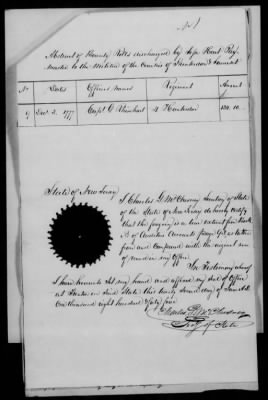 Abstract of Bounty Rolls discharged by
to the Militia of the Counties of Hunterdon & Somerset
No Dates Officers Names Regiment Amount
9 Dec. 3. 1777 Capt C. 4 Hunterdon
State of New Jersey
I Charles D. McChesney Secretary of State
of the State of New Jersey do hereby certify
that the foregoing is a true extract from Book
B. of Auditors Accounts Page 90. as taken
from and compared with the original now
of record in my Office.
In Testimony whereof
I have hereunto set my hand and affixed my Seal of Office
at Trenton in said State this twenty day of
One thousand eight hundred & fifty four
Charles D. McChesney
Secy of State